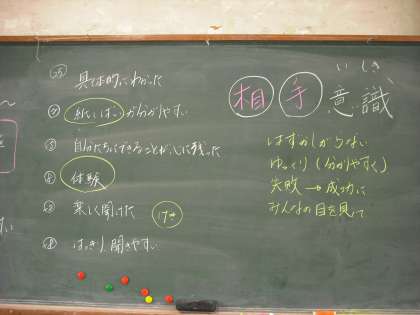 具体的にわかった
紙しばいが分かりやすい
自分たちにできることが心に残った
体験
楽しく聞けた
はっきり聞きやすい
いしき
相手意識
はずかしがらない
ゆっくり（分かりやすく）
失敗→成功に
みんなの目を見て